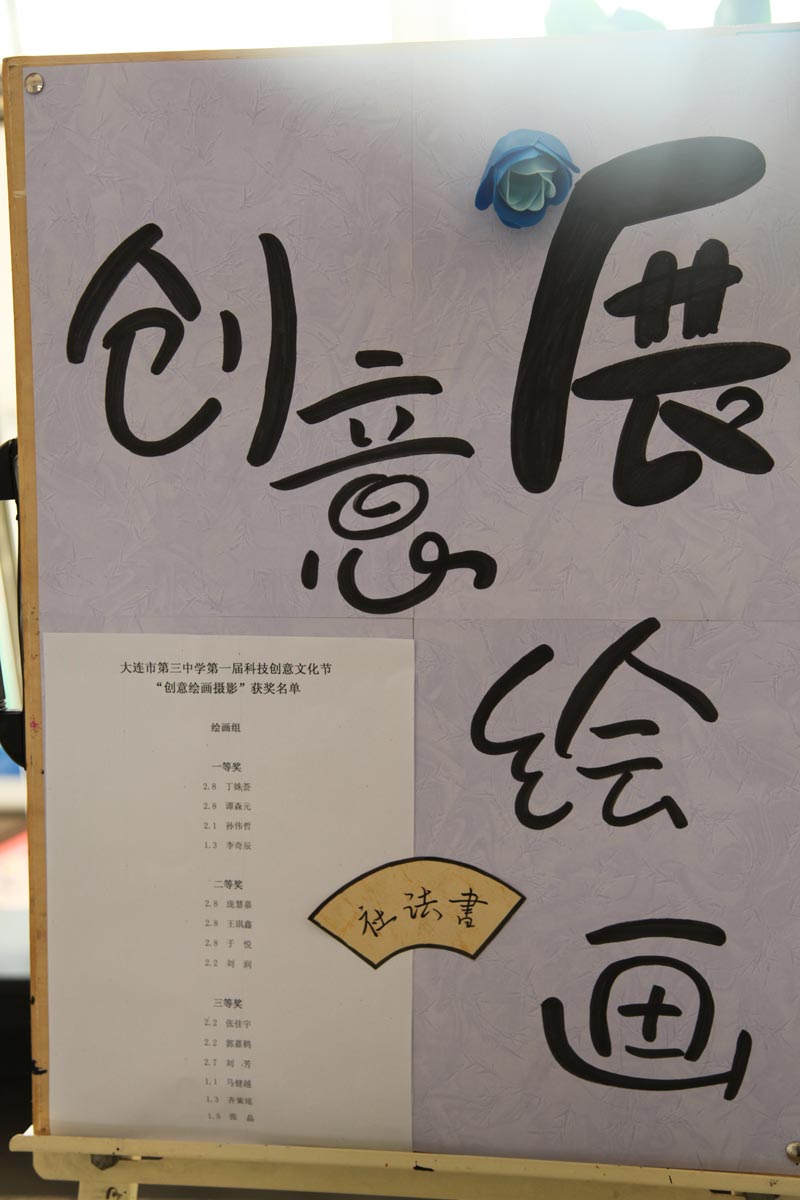 创意
展
绘画
大连市第三中学第一届科技创意文化节
“创意绘画摄影”获奖名单
绘画组
一等奖
2.8 丁姝荟
2.8 谭森元
2.1 孙伟哲
1.3 李奇辰
二等奖
2.8 庞慧嘉
2.8 王琪鑫
2.8 于 悦
2.2 刘 润
三等奖
2.2 张佳宇
2.2 郭嘉鹤
2.7 刘 芳
1.1 马健越
1.3
1.5 张 晶
社法書